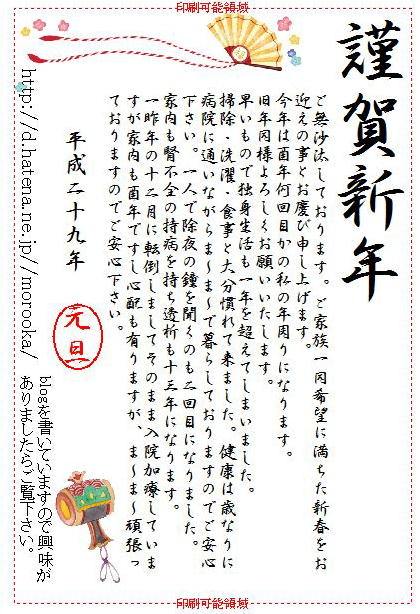 印刷可能領域
謹賀新年
ご無沙汰しております。ご家族一同希望に満ちた新春をお
迎えの事とお慶び申し上げます。
今年は酉年何回目かの私の年周りになります。
旧年同様よろしくお願いいたします。
早いもので独身生活も一年を超えてしまいました。
掃除・洗濯・食事と大分慣れて来ました。健康は歳なりに
病院に通いながらま~ま~で暮らしておりますのでご安心
下さい。一人で除夜の鐘を聞くのも二回目になりました。
家内も腎不全の持病を持ち透析も十三年になります。
一昨年の十二月に転倒しましてそのまま入院加療していま
すが家内も酉年ですし心配も有りますが、ま~ま~頑張っ
ておりますのでご安心下さい。
平成二十九年
元旦
http://d.hatena.ne.jp//morooka/
blogを書いていますので興味が
ありましたらご覧下さい。
印刷可能領域